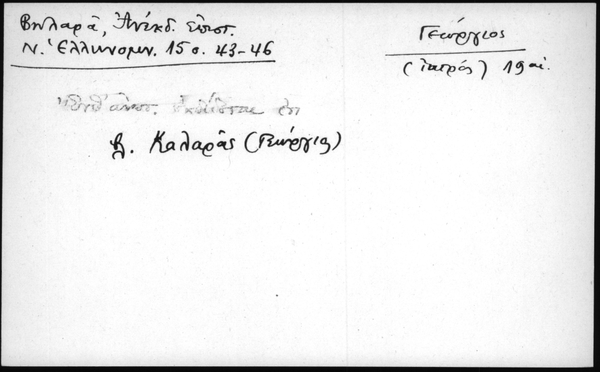 Βηλαρᾶ, Ἀνέκδ. ἐπιστ.
Ν. Ἑλληνομν. 15 σ. 43-46
Γεώργιος
(ἰατρός) 19 αἰ.
βλ. Καλαρᾶς (Γεώργιος)